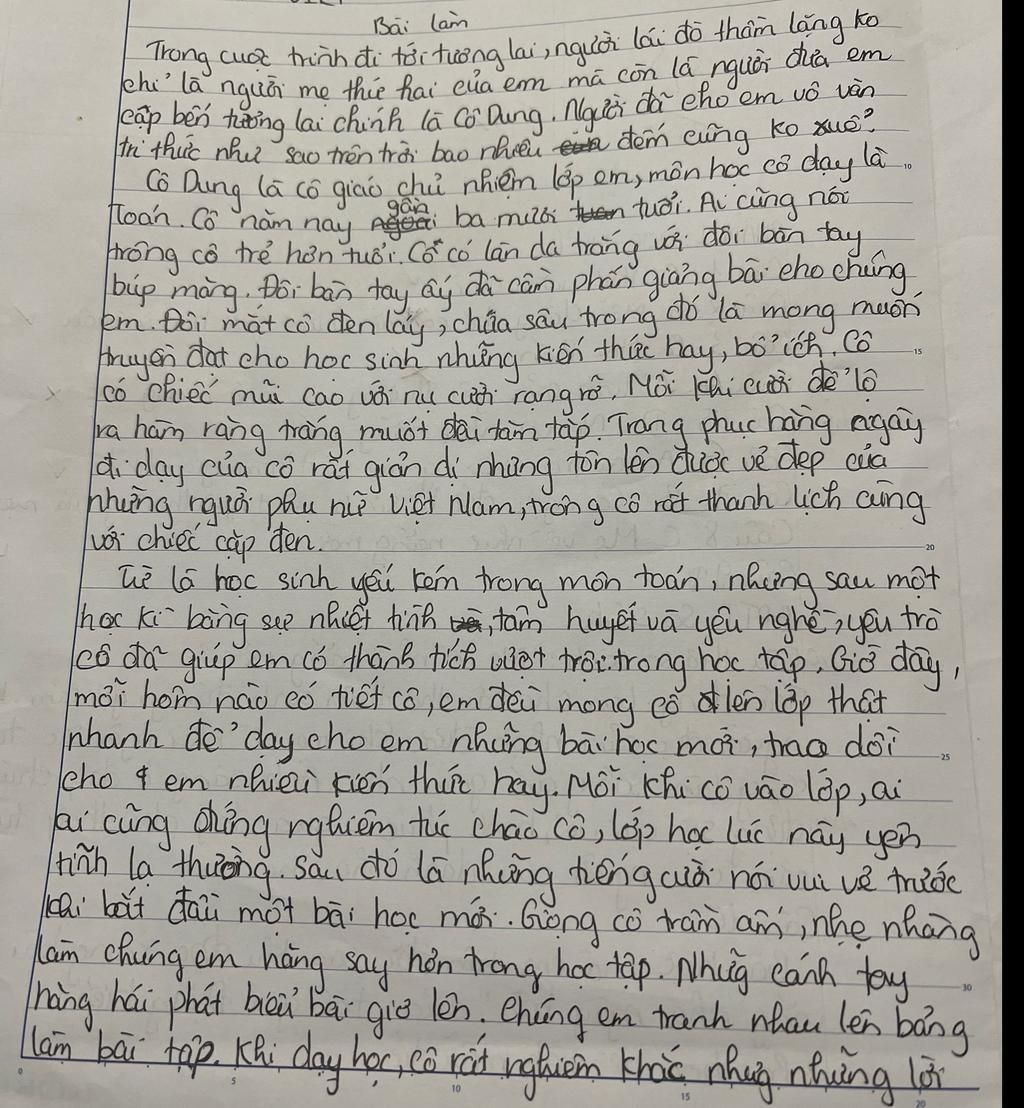 Bài làm
Trong cuộc trình đi tới tương lai, người lái đò thầm lặng ko
chỉ là người mẹ thứ hai của em mà còn là người đưa em
cập bến tương lai chính là Cô Dung. Người đã cho em vô vàn
tri thức như sao trên trời bao nhiêu đếm cũng ko xuể.
Cô Dung là cô giáo chủ nhiệm lớp em, môn học cô dạy là
Toán. Cô năm nay gần ba mươi tuổi. Ai cũng nói
trông cô trẻ hơn tuổi. Cô có làn da trắng với đôi bàn tay
búp măng. Đôi bàn tay ấy đã cầm phấn giảng bài cho chúng
em. Đôi mắt cô đen láy, chứa sâu trong đó là mong muốn
truyền đạt cho học sinh những kiến thức hay, bổ ích. Cô
có chiếc mũi cao với nụ cười rạng rỡ. Mỗi khi cười để lộ
ra hàm răng trắng muốt đều tăm tắp. Trang phục hàng ngày
đi dạy của cô rất giản dị nhưng tôn lên được vẻ đẹp của
những người phụ nữ Việt Nam, trông cô rất thanh lịch cùng
với chiếc cặp đen.
Từ là học sinh yếu kém trong môn toán, nhưng sau một
học kì bằng sự nhiệt tình, tâm huyết và yêu nghề, yêu trò
cô đã giúp em có thành tích vượt trội trong học tập. Giờ đây,
mỗi hôm nào có tiết cô, em đều mong cô lên lớp thật
nhanh để dạy cho em những bài học mới, trao dồi
cho em nhiều kiến thức hay. Mỗi khi cô vào lớp, ai
ai cũng đứng nghiêm túc chào cô, lớp học lúc này yên
tĩnh lạ thường. Sau đó là những tiếng cười nói vui vẻ trước
khi bắt đầu một bài học mới. Giọng cô trầm ấm, nhẹ nhàng
làm chúng em hăng say hơn trong học tập. Những cánh tay
hăng hái phát biểu bài giơ lên. Chúng em tranh nhau lên bảng
làm bài tập. Khi dạy học, cô rất nghiêm khắc nhưg những lời